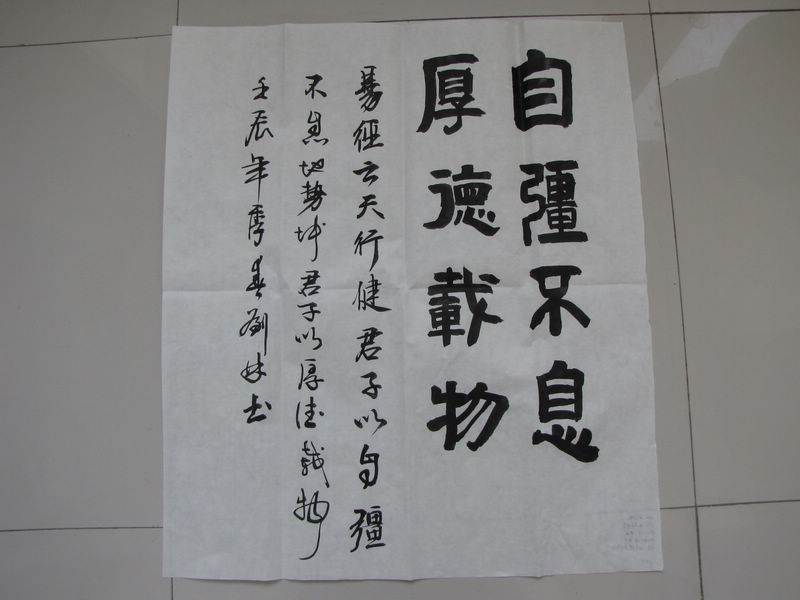 自彊不息
厚德載物
易經云天行健君子以自彊
不息地勢坤君子以厚德載物
壬辰年季春劉妹书